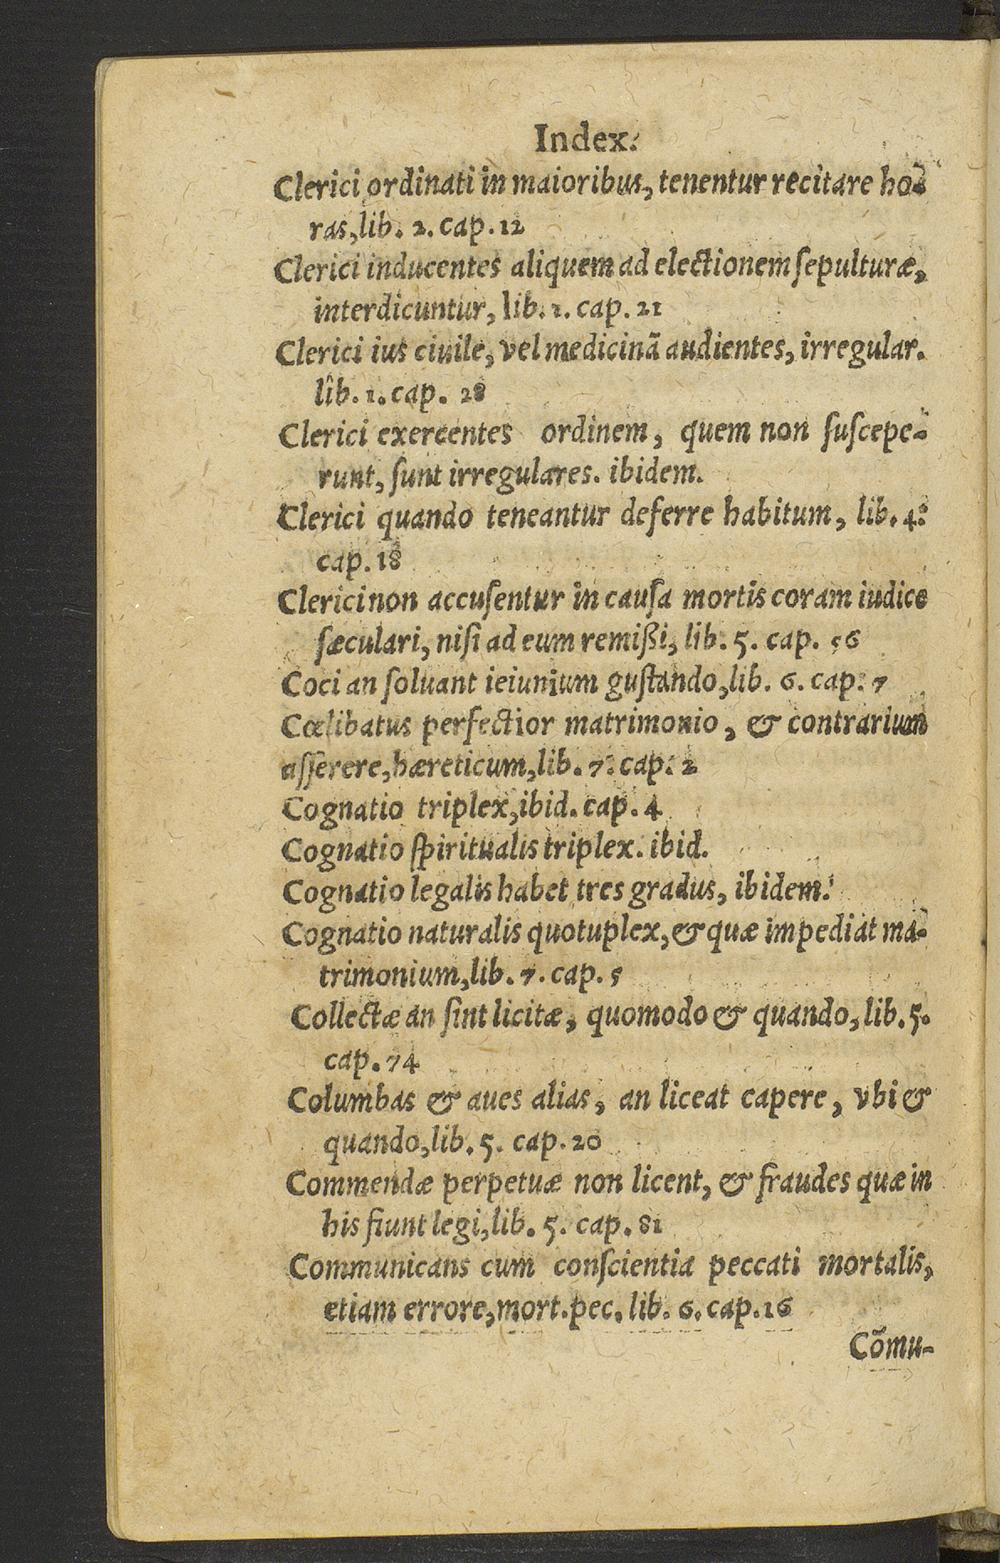 Index.
Clerici ordinati in maioribus, tenentur recitare ho-
ras, lib. 2. cap. 12
Clerici inducentes aliquem ad electionem ſepulturæ,
interdicuntur, lib. 1. cap. 21
Clerici ius ciuile, vel medicinã audientes, irregular.
lib. 1. cap. 28
Clerici exercentes ordinem, quem non ſuſcepe-
runt, ſunt irregulares. ibidem.
Clerici quando teneantur deferre habitum, lib. 4.
cap. 18
Clerici non accuſentur in cauſa mortis coram iudice
ſæculari, niſi ad eum remißi, lib. 5. cap. 56
Coci an ſoluant ieiunium guſtando, lib. 6. cap. 7
Cœlibatus perfectior matrimonio, & contrarium
aſſerere, hæreticum, lib. 7. cap. 2
Cognatio triplex, ibid. cap. 4
Cognatio ſpiritualis triplex. ibid.
Cognatio legalis habet tres gradus, ibidem.
Cognatio naturalis quotuplex, & quæ impediat ma-
trimonium, lib. 7. cap. 5
Collectæ an ſint licitæ, quomodo & quando, lib. 5.
cap. 74
Columbas & aues alias, an liceat capere, vbi &
quando, lib. 5. cap. 20
Commendæ perpetuæ non licent, & fraudes quæ in
his fiunt legi, lib. 5. cap. 81
Communicans cum conſcientia peccati mortalis,
etiam errore, mort. pec. lib. 6. cap. 16
Cõmu-